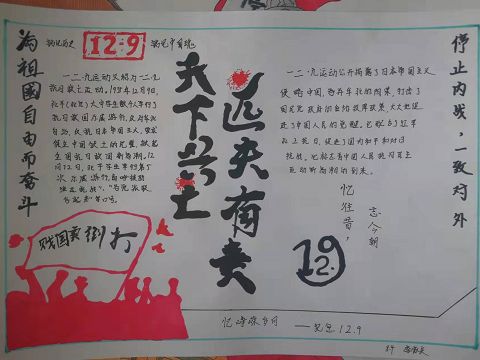 为祖國自由而奋斗
铭记历史
12·9
天下兴亡
匹夫有责
停止内战，一致对外
一二·九运动又称为一二·九
抗日救亡运动。1935年12月9日，
北平(北京)大中学生数千人举行了
抗日救国示威游行，反对华北
自治，反抗日本帝国主义，要求
保全中国领土的完整，掀起
全国抗日救国新高潮。12
月12日，北平学生举行第5
次示威游行，高呼
一二·九运动公开揭露了日本帝国主义
侵略中国，吞并华北的阴谋，打击了
国民党政府的妥协投降政策，大大地促
进了中国人民的觉醒。它配合了红军
北上抗日，促进了国内和平和对日
抗战。它标志着中国人民抗日民主
运动新高潮的到来。
忆往昔，
志今朝
打倒卖国贼
12.9
忆峥嵘岁月
12.9